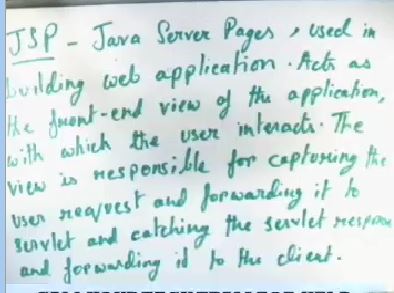 JSP - Java Server Pages, used in
building web application. Acts as
the front-end view of the application,
with which the user interacts. The
view is responsible for capturing the
user request and forwarding it to
servlet and catching the servlet response
and forwarding it to the client.